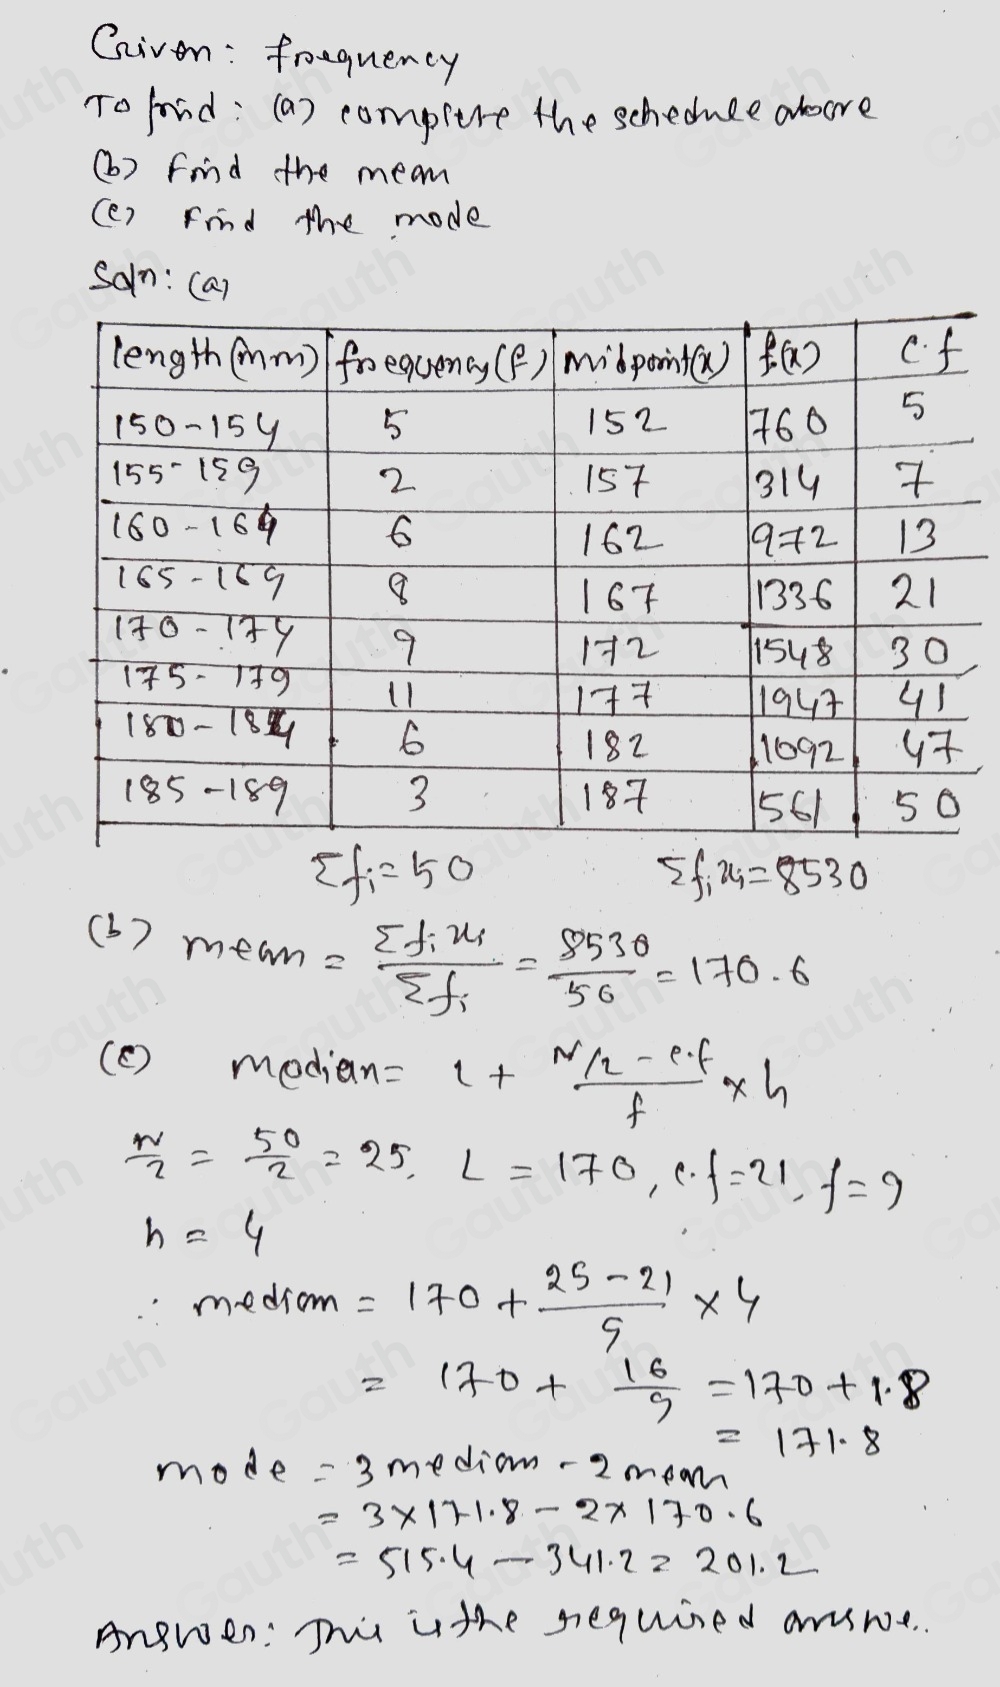 Given: frequency
To find: (a) complete the schedule above
(b) Find the mean
(c) Find the mode
Soln: (a)
length (mm) frequency (f) midpoint (x) f(x) c.f
150-154 5 152 760 5
155-159 2 157 314 7
160-164 6 162 972 13
165-169 8 167 1336 21
170-174 9 172 1548 30
175-179 11 177 1947 41
180-184 6 182 1092 47
185-189 3 187 561 50
Σfi = 50 Σfixi = 8530
(b) mean = Σfixi / Σfi = 8530 / 50 = 170.6
(c) Median = l + N/2 - c.f / f × h
N/2 = 50/2 = 25, L = 170, c.f = 21, f = 9
h = 4
∴ median = 170 + 25-21 / 9 × 4
= 170 + 16/9 = 170 + 1.8
= 171.8
mode = 3 median - 2 mean
= 3×171.8 - 2×170.6
= 515.4 - 341.2 = 201.2
Answer: This is the required answe..